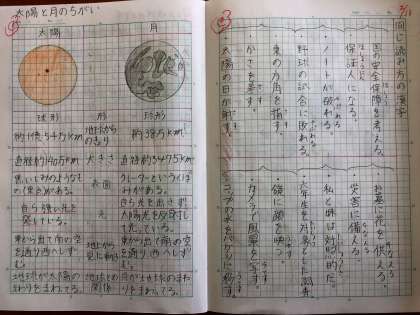 太陽と月のちがい
太陽
月
球形
形
球形
約1億5千万km
地球からのきょり
約38万km
直径約140万km
大きさ
直径約3475km
黒いしみのようなもの(黒点)がある。
表面
クレーターというくぼみがある。
自ら強い光を発している。
光
自ら光を出さず太陽光を反射して光っている。
東から出て南の空を通り西へしずむ。
地球から見た動き
東から出て南の空を通り西へしずむ。
地球が太陽のまわりをまわってる。
地球との関係
月が地球のまわりをまわってる。
同じ読み方の漢字
・国の安全保障を考える。
・保証人になる。
・ノートが破れる。
・野球の試合に敗れる。
・東の方角を指す。
・かさを差す。
・太陽の日が射す。
・災害に備える。
・私と姉は対照的だ。
・六年生を対象とした調査
・鏡に顔を映す。
・カメラで風景を写す。